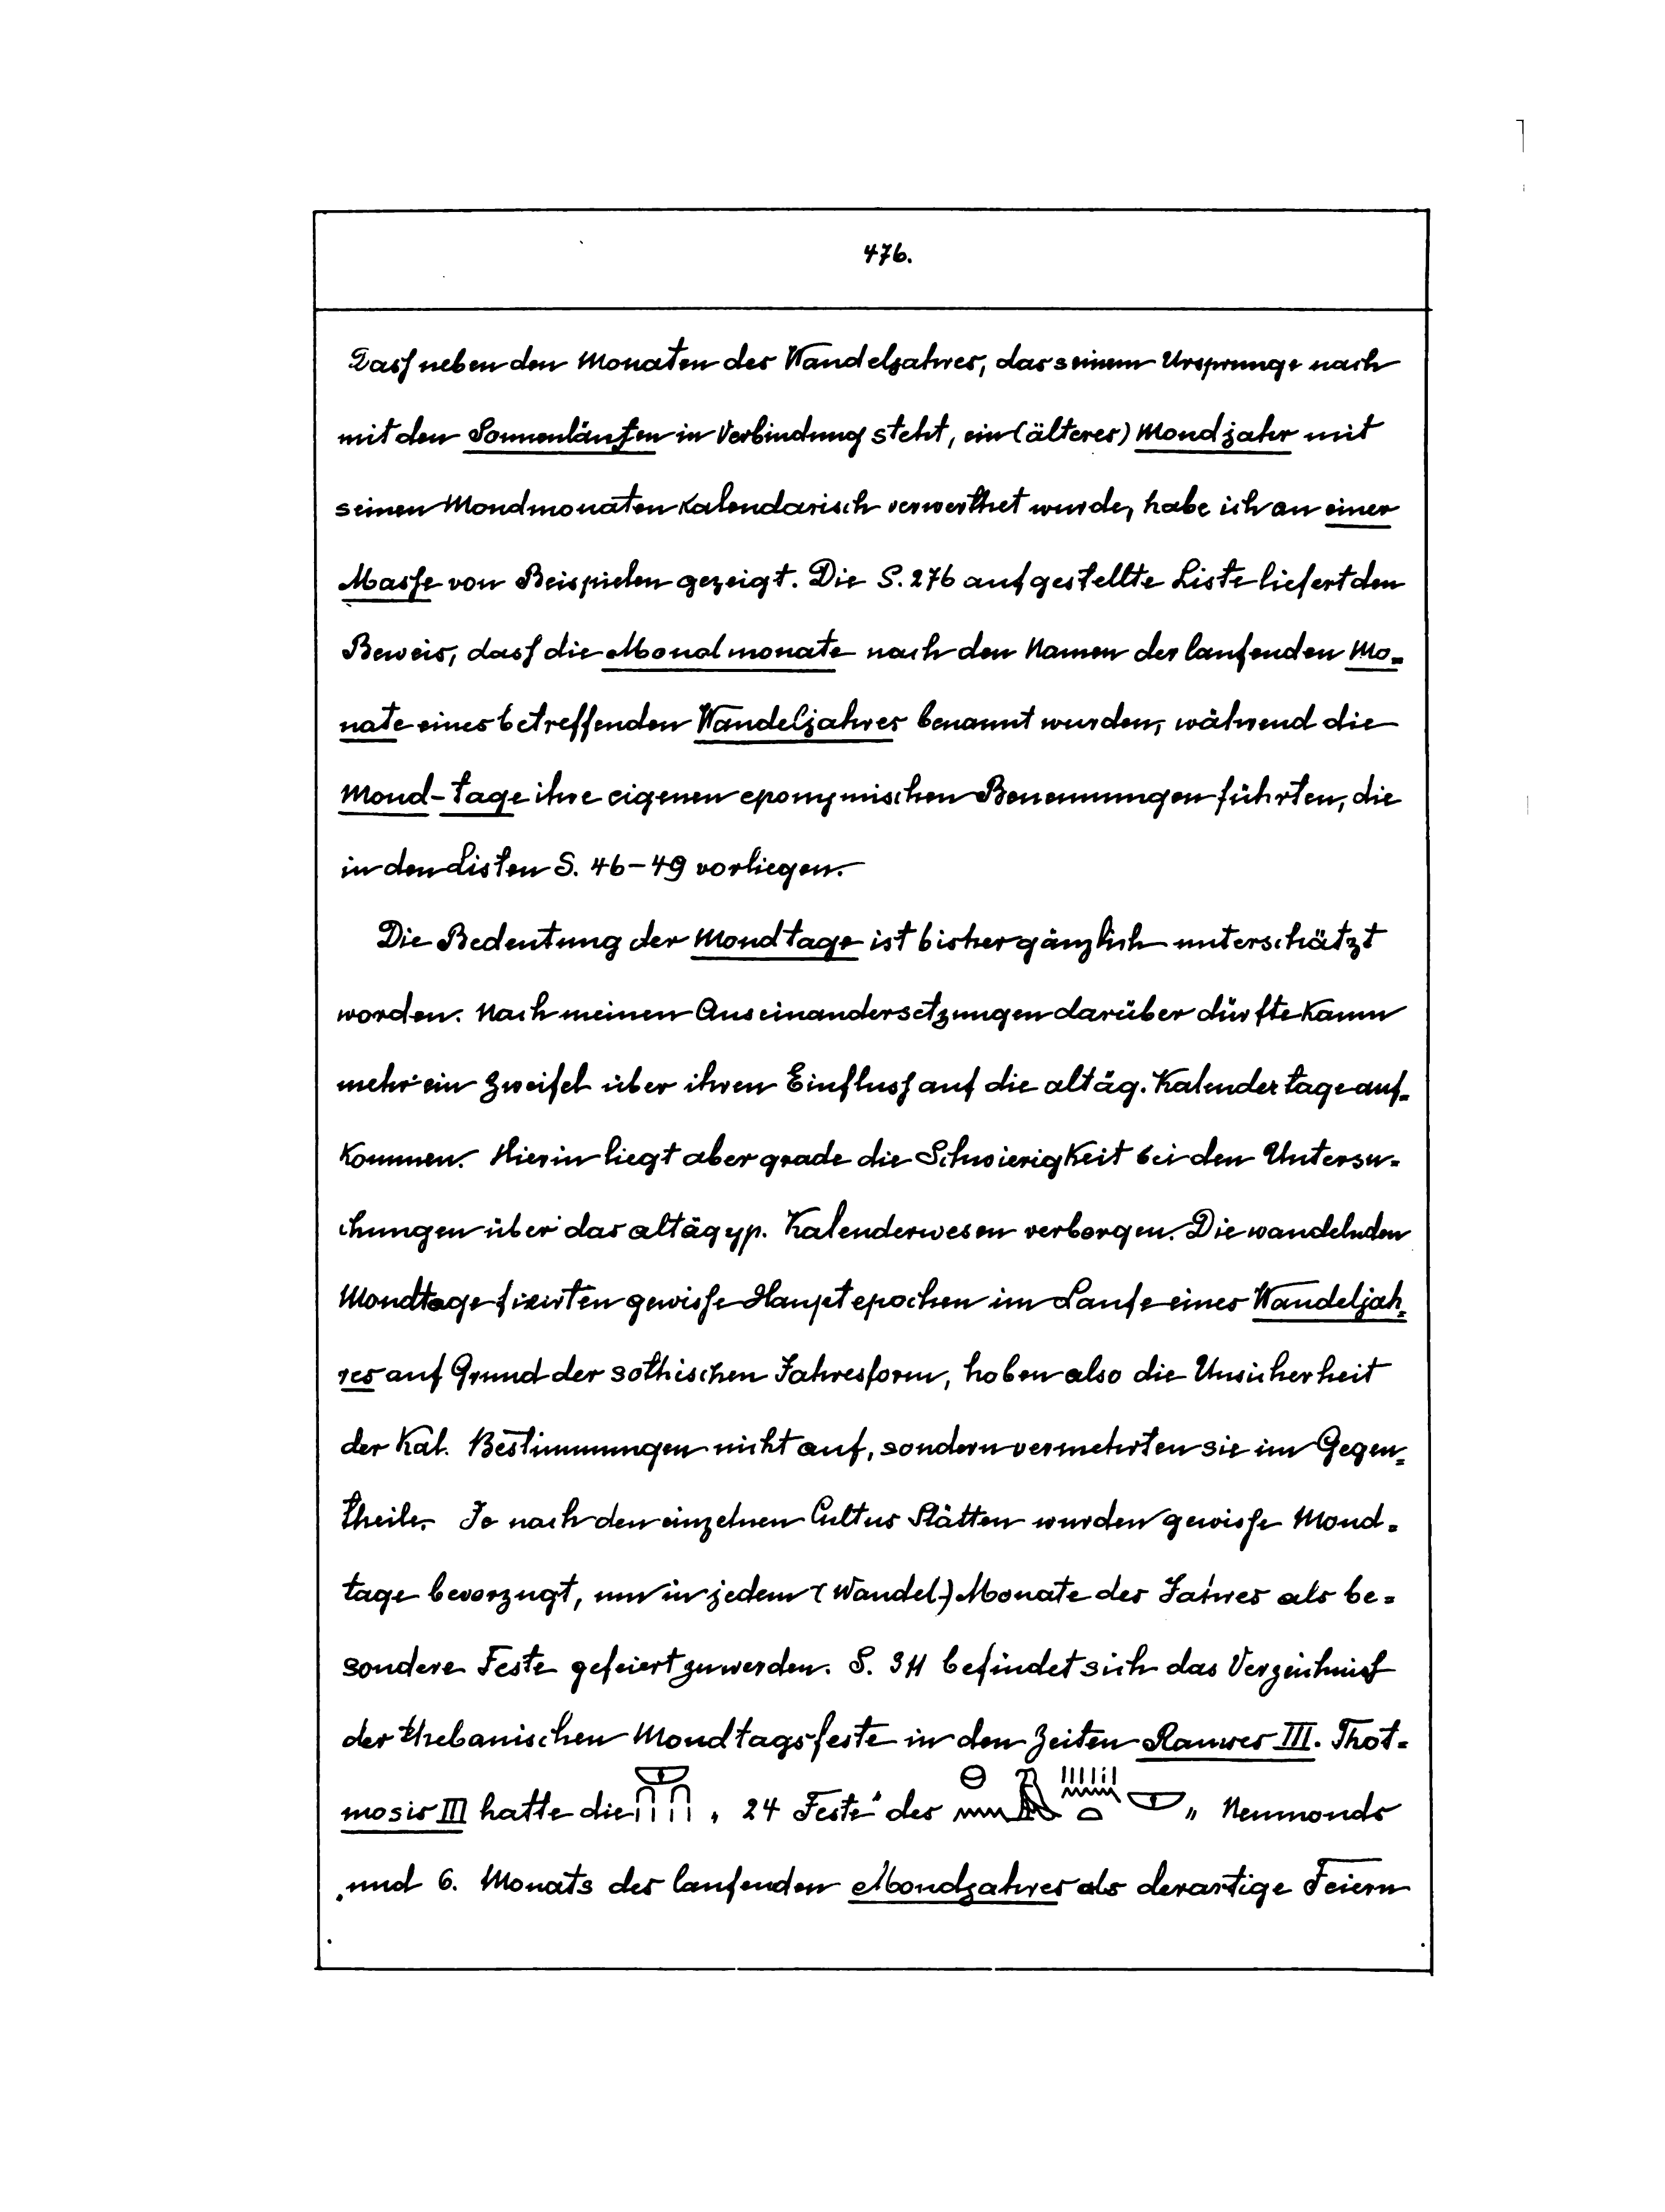 476.
Dass neben den Monaten des Wandeljahres, das seinem Ursprunge nach
mit den Sonnenläufen in Verbindung steht, ein (älteres) Mondjahr mit
seinen Mondmonaten kalendarisch verwerthet wurde, habe ich an einer
Masse von Beispielen gezeigt. Die S. 276 aufgestellte Liste liefert den
Beweis, dass die Mondmonate nach den Namen der laufenden Mo-
nate eines betreffenden Wandeljahres benannt wurden, während die
Mond-tage ihre eigenen eponymischen Benennungen führten, die
in den Listen S. 46-49 vorliegen.
Die Bedeutung der Mondtage ist bisher gänzlich unterschätzt
worden. Nach meinen Auseinandersetzungen darüber dürfte kaum
mehr ein Zweifel über ihren Einfluss auf die altäg. Kalendertage auf-
kommen. Hierin liegt aber grade die Schwierigkeit bei den Untersu-
chungen über das altägyp. Kalenderwesen verborgen. Die wandelnden
Mondtage fixirten gewisse Hauptepochen im Laufe eines Wandeljah-
res auf Grund der sothischen Jahresform, hoben also die Unsicherheit
der Kal. Bestimmungen nicht auf, sondern vermehrten sie im Gegen-
theile. Je nach den einzelnen Cultus Stätten wurden gewisse Mond-
tage bevorzugt, um in jedem (Wandel-) Monate des Jahres als be-
sondere Feste gefeiert zu werden. S. 311 befindet sich das Verzeichniss
der thebanischen Mondtagsfeste in den Zeiten Ramses III. Thot-
mosis III hatte die „24 Feste" des „Neumonds
„und 6. Monats des laufenden Mondjahres als derartige Feiern